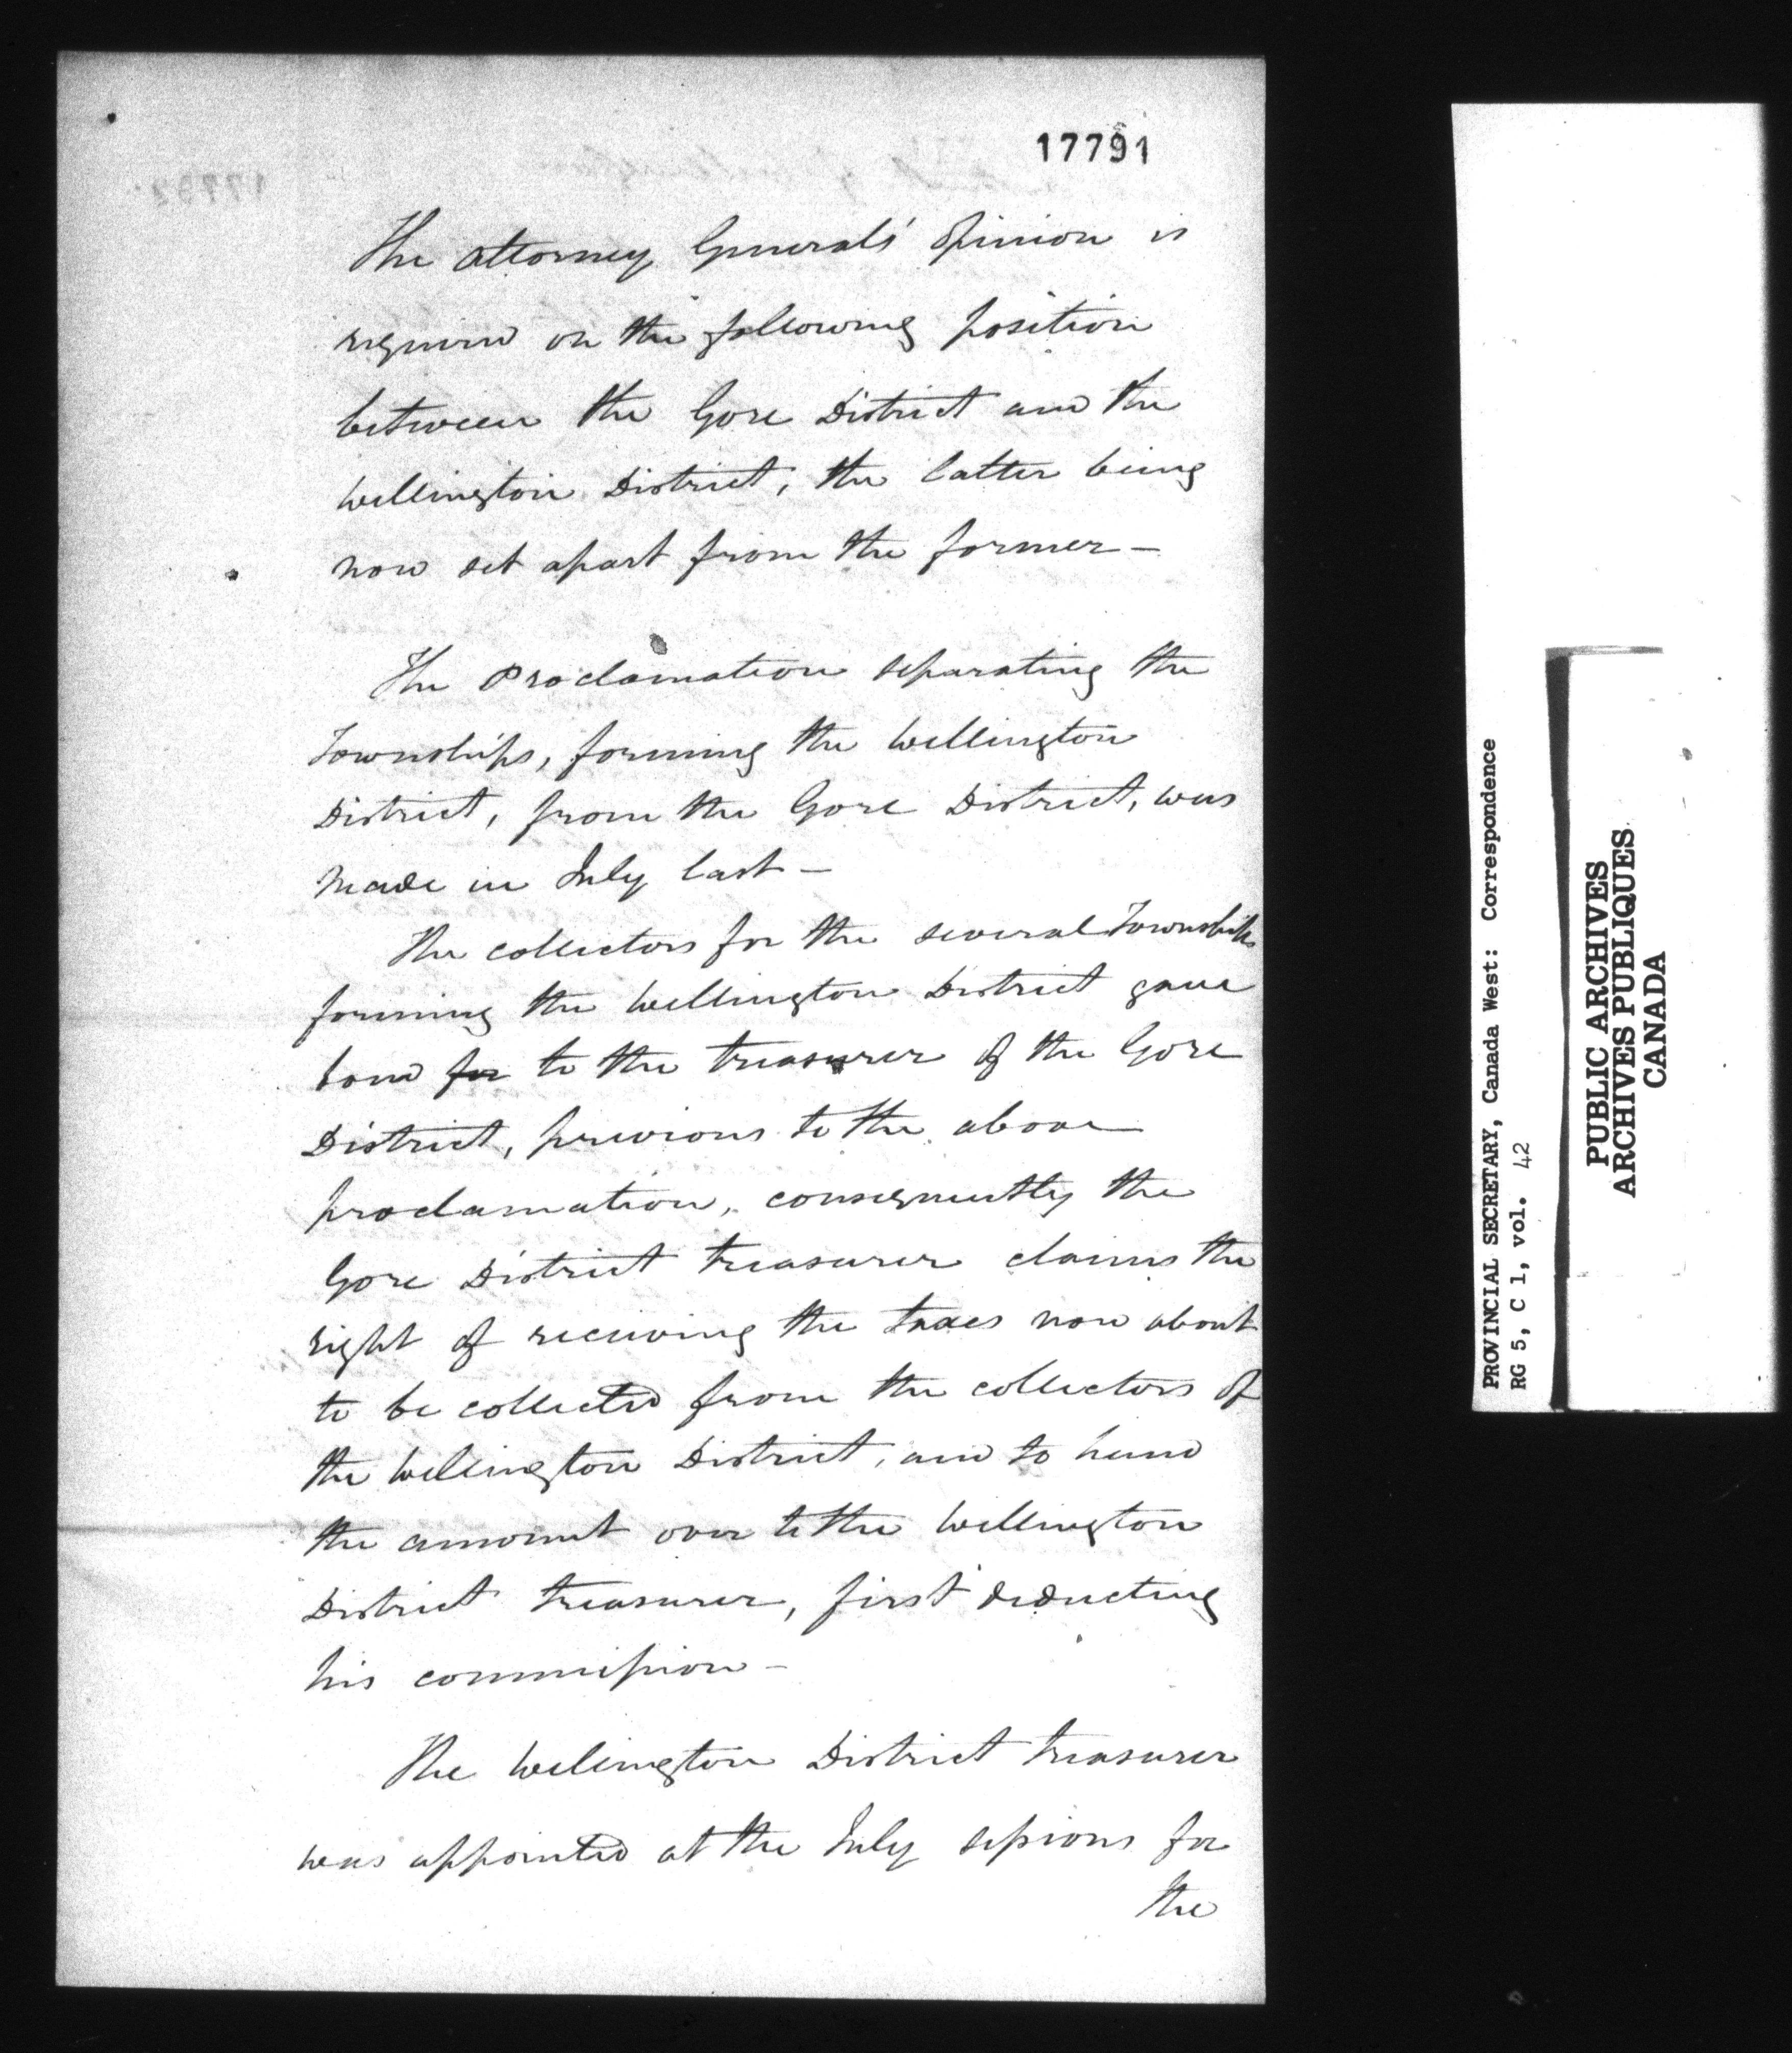 17791
The attorney Generals' Opinion is
required on the following position
between the Gore District and the
Wellington District, the latter being
now set apart from the former—
The Proclamation separating the
Townships, forming the Wellington
District, from the Gore District, was
made in July last—
The collectors for the several Townships
forming the Wellington District gave
bond for to the treasurer of the Gore
District, previous to the above
proclamation, consequently the
Gore District treasurer claims the
right of receiving the taxes now about
to be collected from the collectors of
the Wellington District, and to hand
the amount over to the Wellington
District treasurer, first deducting
his commission—
The Welington District treasurer
was appointed at the July sessions for
the
PROVINCIAL SECRETARY, Canada West: Correspondence
RG 5, C 1, vol. 42
PUBLIC ARCHIVES
ARCHIVES PUBLIQUES
CANADA